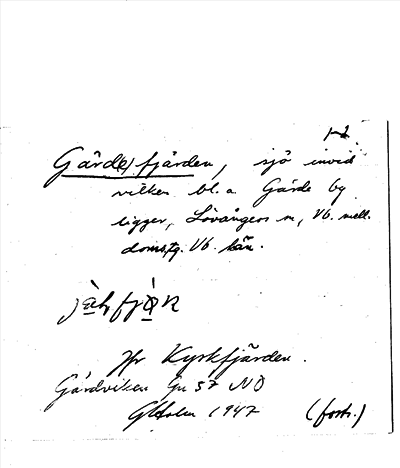 1-2
Gärde(s)fjärden, sjö invid
vilken bl.a Gärde by
ligger, Lövångers sn, Vb. mell.
doms.tg. Vb. län.
Jfr Kyrkfjärden.
Gärdviken Gn 57 NO
GHolm 1947 (forts.)